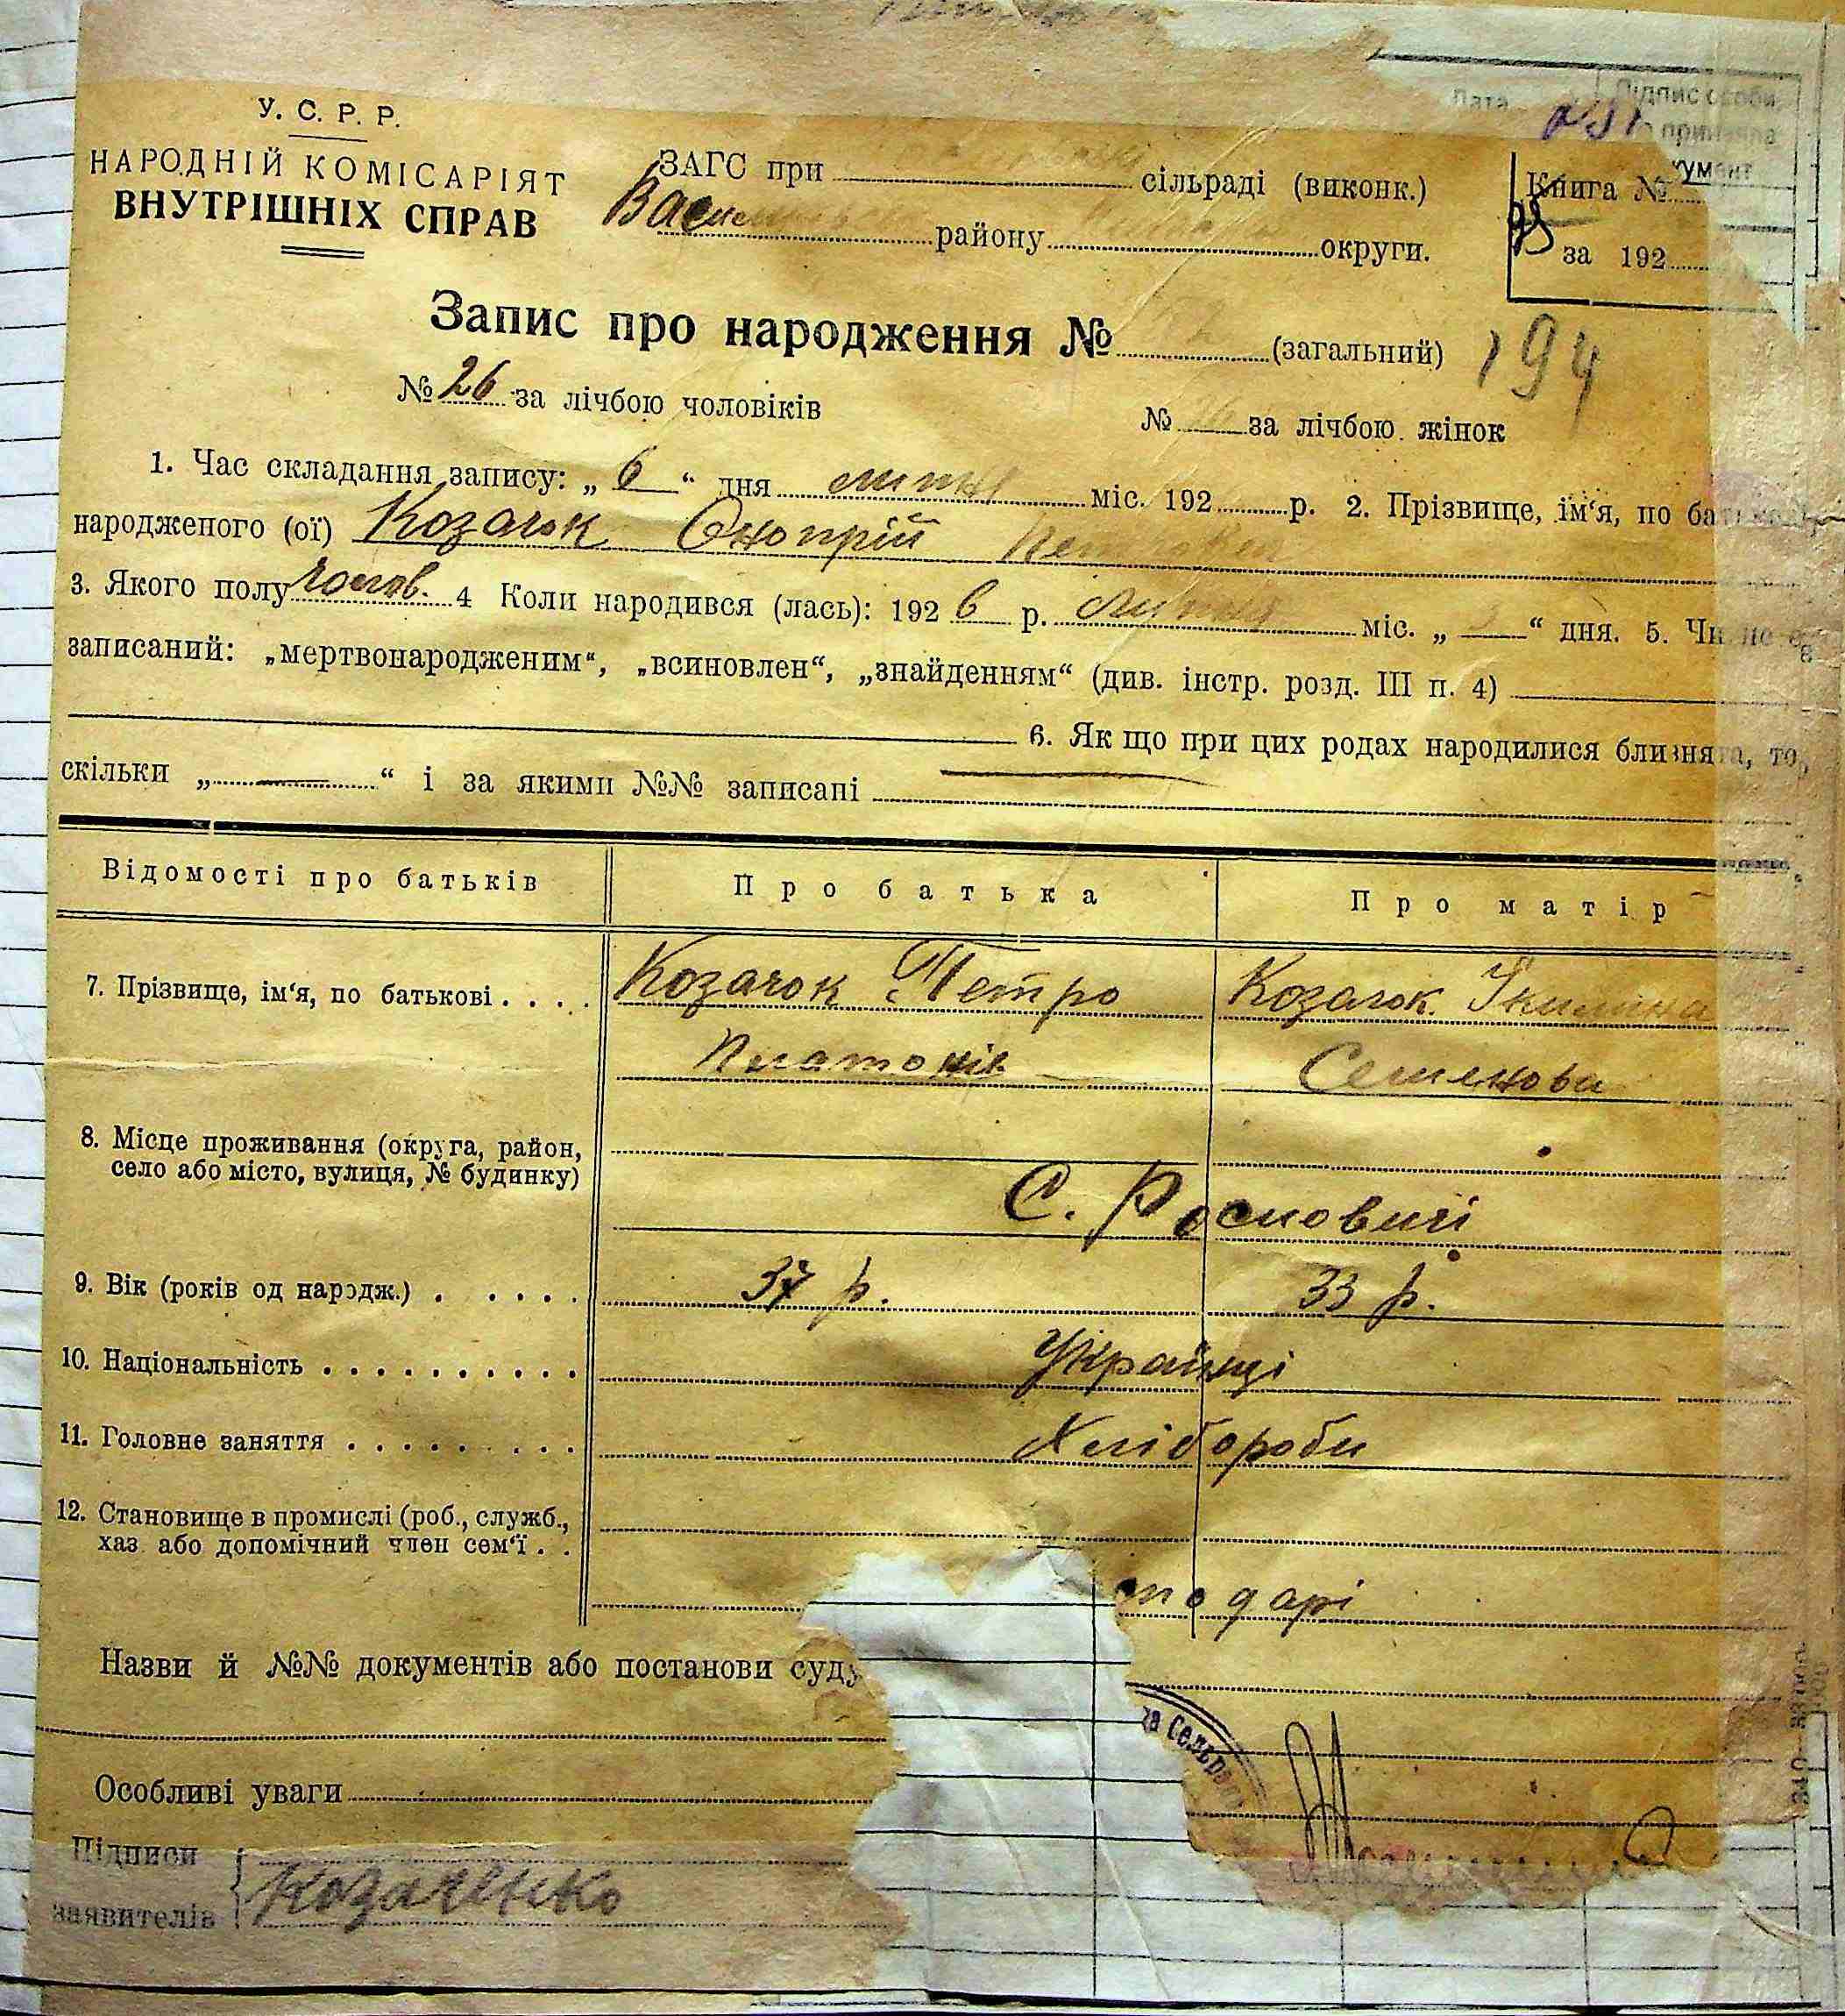 Дата
Підпис особи
приняла
У. С. Р. Р.
НАРОДНІЙ КОМІСАРІЯТ
ВНУТРІШНІХ СПРАВ
ЗАГС при сільраді (виконк.)
району округи.
Книга №
за 192
Запис про народження № (загальний) 194
№ 26 за лічбою чоловіків № за лічбою жінок
1. Час складання запису: „ 6 “ дня липня міс. 192 р. 2. Прізвище, ім‘я, по
народженого (ої) Козачок Онопрій
3. Якого полу чолов. 4 Коли народився (лась): 192 6 р. липня міс. „ “ дня. 5. Чи не
записаний: „мертвонародженим“, „всиновлен“, „знайденням“ (див. інстр. розд. III п. 4)
6. Як що при цих родах народилися близнята, то,
скільки „ “ і за якими №№ записані
Відомості про батьків Про батька Про матір
7. Прізвище, ім‘я, по батькові . . . . Козачок Петро Козачок Якилина
Платонів Семенова
8. Місце проживання (округа, район,
село або місто, вулиця, № будинку)
С. Росновичі
9. Вік (років од народж.) . . . . . 37 р. 33 р.
10. Національність . . . . . . . . . . Українці
11. Головне заняття . . . . . . . . . Хлібороби
12. Становище в промислі (роб., служб.,
хаз. або допомічний член сем‘ї . .
подарі
Назви й №№ документів або постанови суду
Особливі уваги
Підписи
заявителів
Козаченко